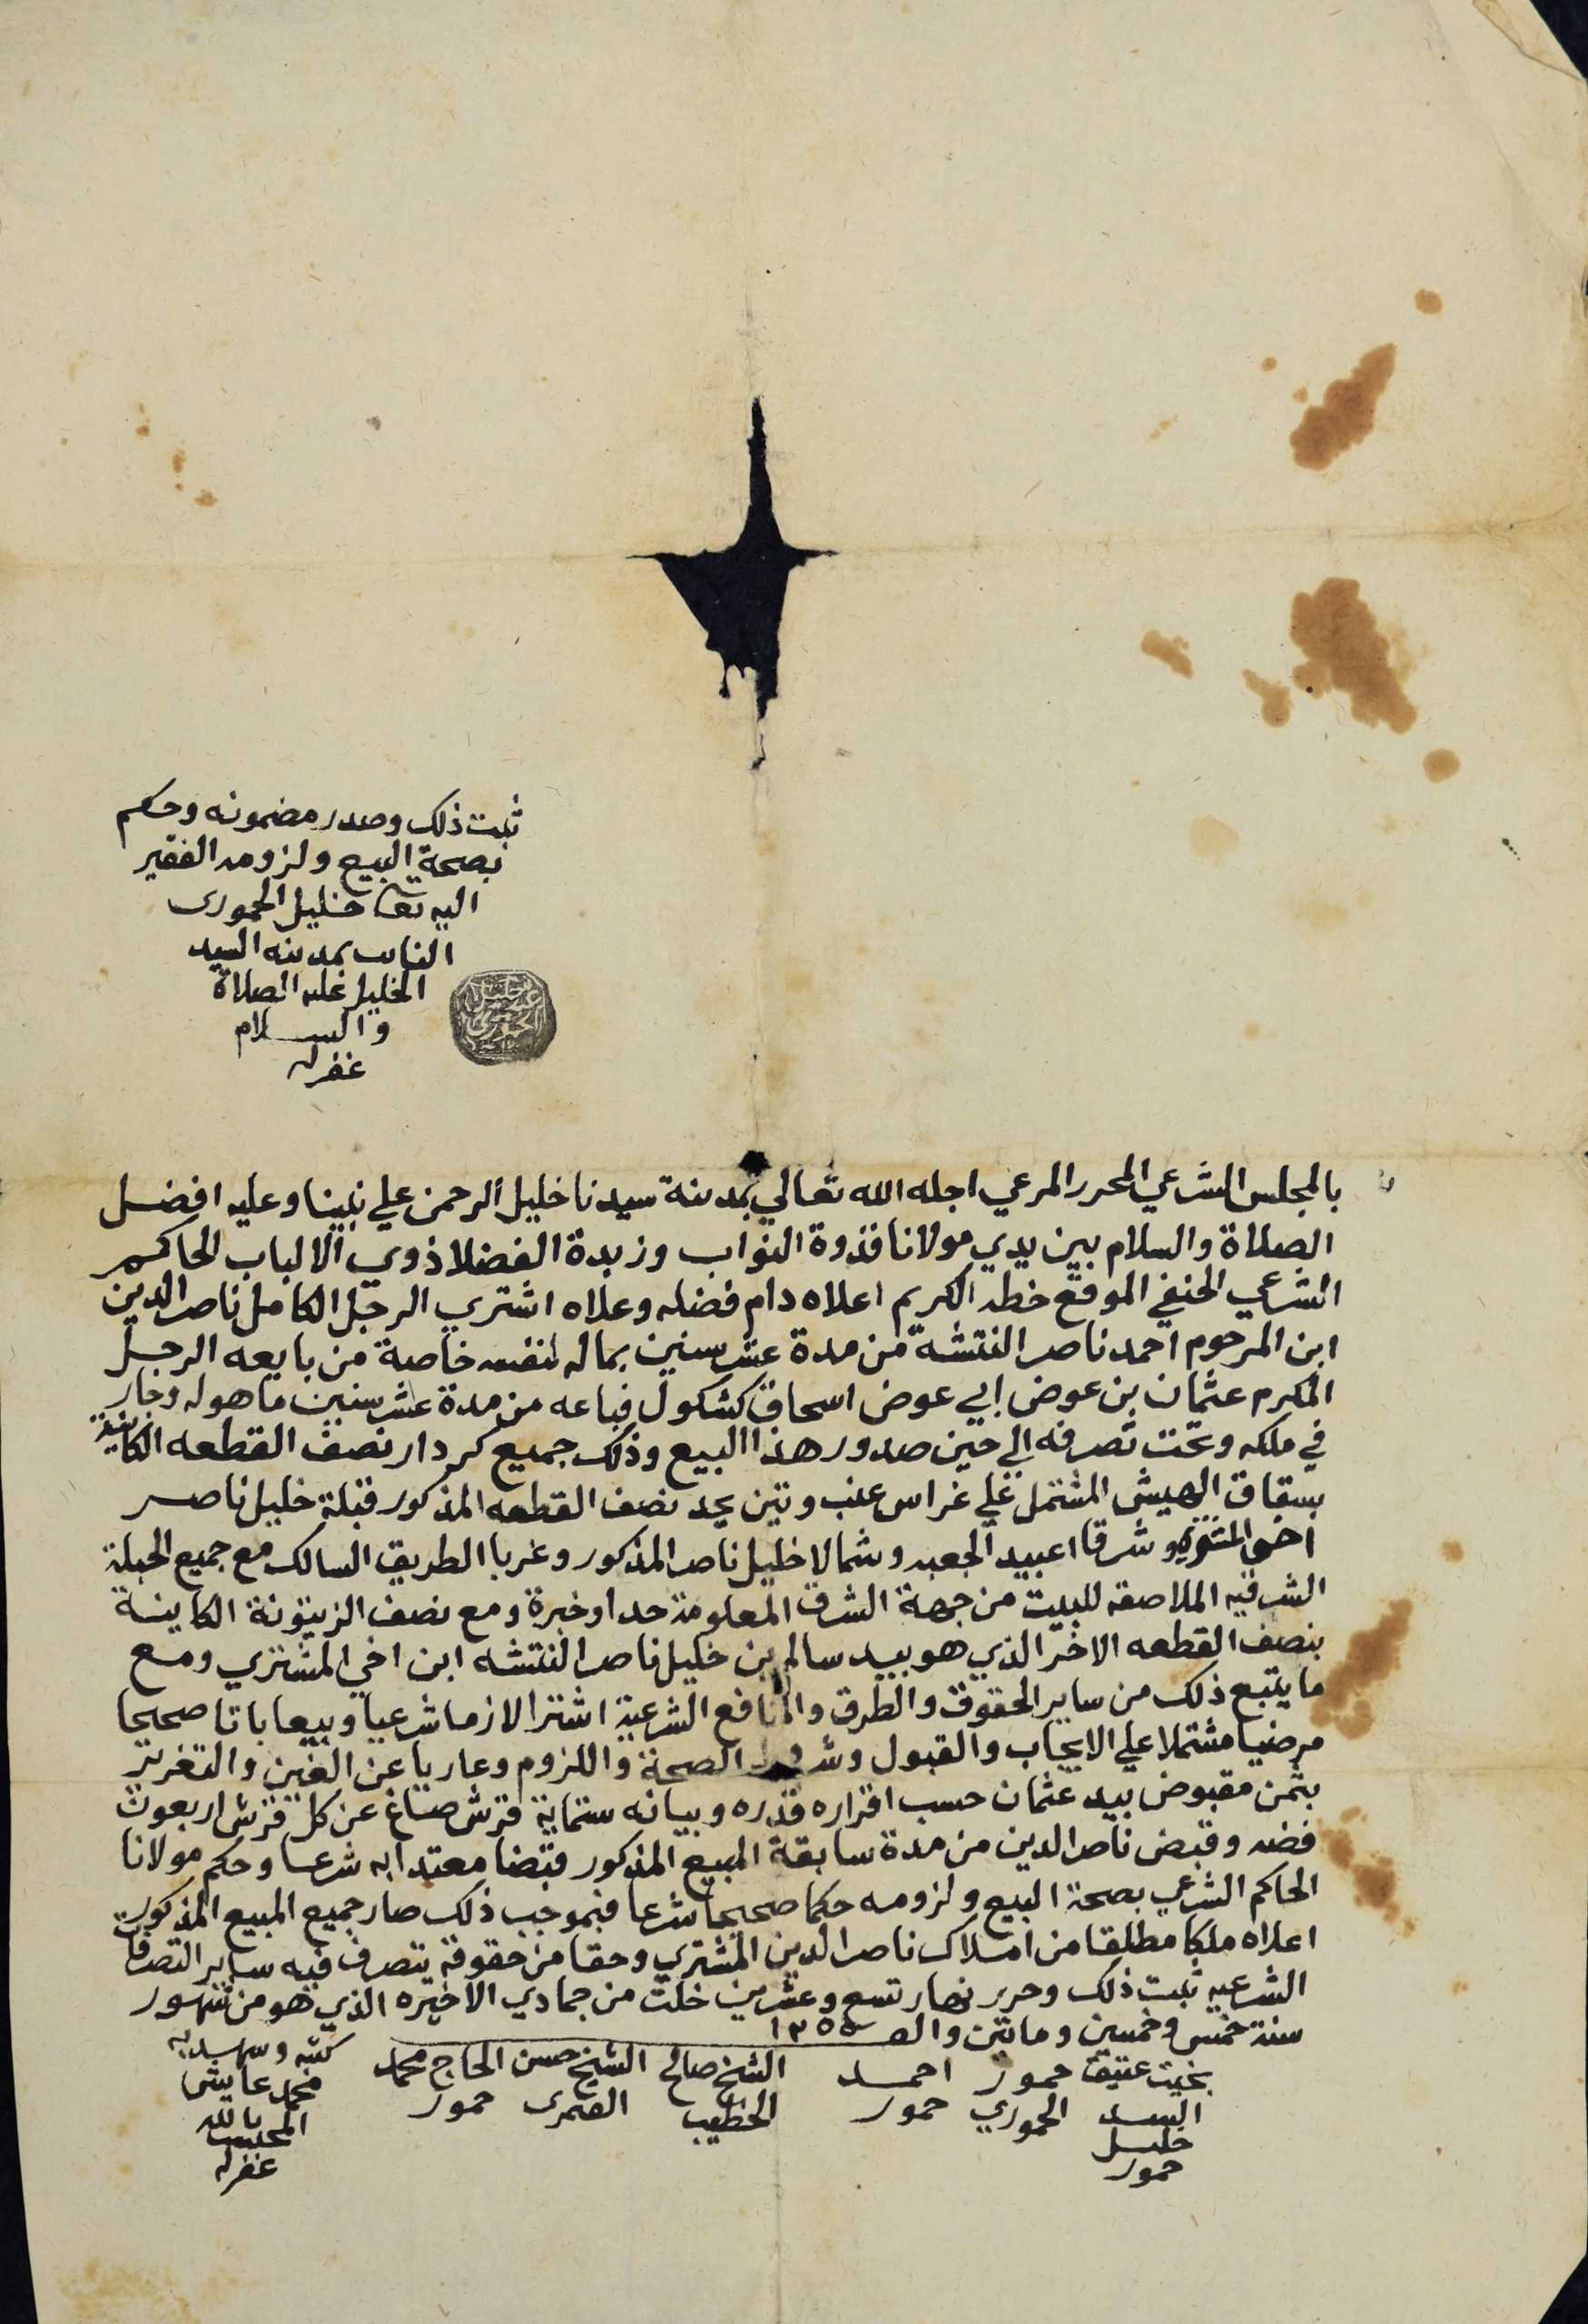 ثبت ذلك وصدر مضمونه وحكم
بصحة البيع ولزومه الفقير
اليه تعا خليل الحموري
النايب بمدينه السيد
الخليل عليه الصلاة
والسلام
غفر له
بالمجلس الشرعي المحرر المرعي اجله الله تعالي بمدينة سيدنا خليل الرحمن علي نبينا وعليه افضل
الصلاة والسلام بين يدي مولانا قدوة النواب وزبدة الفضلا ذوي الالباب الحاكم
الشرعي الحنفي الموقع خطه الكريم اعلاه دام فضله وعلاه اشتري الرجل الكامل ناصر الدين
ابن المرحوم احمد ناصر النتشة من مدة عشر سنين بماله لنفسه خاصة من بايعه الرجل
المكرم عثمان بن عوض ابي عوض اسحاق كشكول فباعه من مدة عشر سنين ما هو له وجار
في ملكه وتحت تصرفه الي حين صدور هذا البيع وذلك جميع كردار نصف القطعه الكاينة
بسقاق الهيش المشتمل علي غراس عنب وتين يحد نصف القطعه المذكور قبلة خليل ناصر
اخي المشتري وشرقا اعبيد الجعبه وشمالا خليل ناصر المذكور وغربا الطريق السالك مع جميع الحبلة
الشرقيه الملاصقه للبيت من جهة الشرق المعلومة حدا وخبرة ومع نصف الزيتونة الكاينة
بنصف القطعه الاخر الذي هو بيد سالم بن خليل ناصر النتشه ابن اخي المشتري ومع
ما يتبع ذلك من ساير الحقوق والطرق والمنافع الشرعية اشترا لازما شرعيا وبيعا باتا صحيحا
مرضيا مشتملا علي الايجاب والقبول وشروط الصحة واللزوم وعاريا عن الغبن والتغرير
بثمن مقبوض بيد عثمان حسب اقراره قدره وبيانه ستماية قرش صاغ عن كل قرش اربعون
فضه وقبض ناصر الدين من مدة سابقة المبيع المذكور قبضا معتدا به شرعا وحكم مولانا
الحاكم الشرعي بصحة البيع ولزومه حكما صحيحا شرعا فبموجب ذلك صار جميع المبيع المذكور
اعلاه ملكا مطلقا من املاك ناصر الدين المشتري وحقا من حقوقه يتصرف فيه ساير التصرفات
الشرعيه ثبت ذلك وحرر نهار تسع وعشرين خلت من جمادي الاخيره الذي هو من شهور
سنة خمس وخمسين وماتين والف ١٢٥٥
بخيت عتيق السيد خليل حمور
حمور الحموري
احمد حمور
الشيخ صالح الخطيب
الشيخ حسن العمرى
الحاج محمد حمور
كتبه وشهد به محمد عايش بالله غفر له